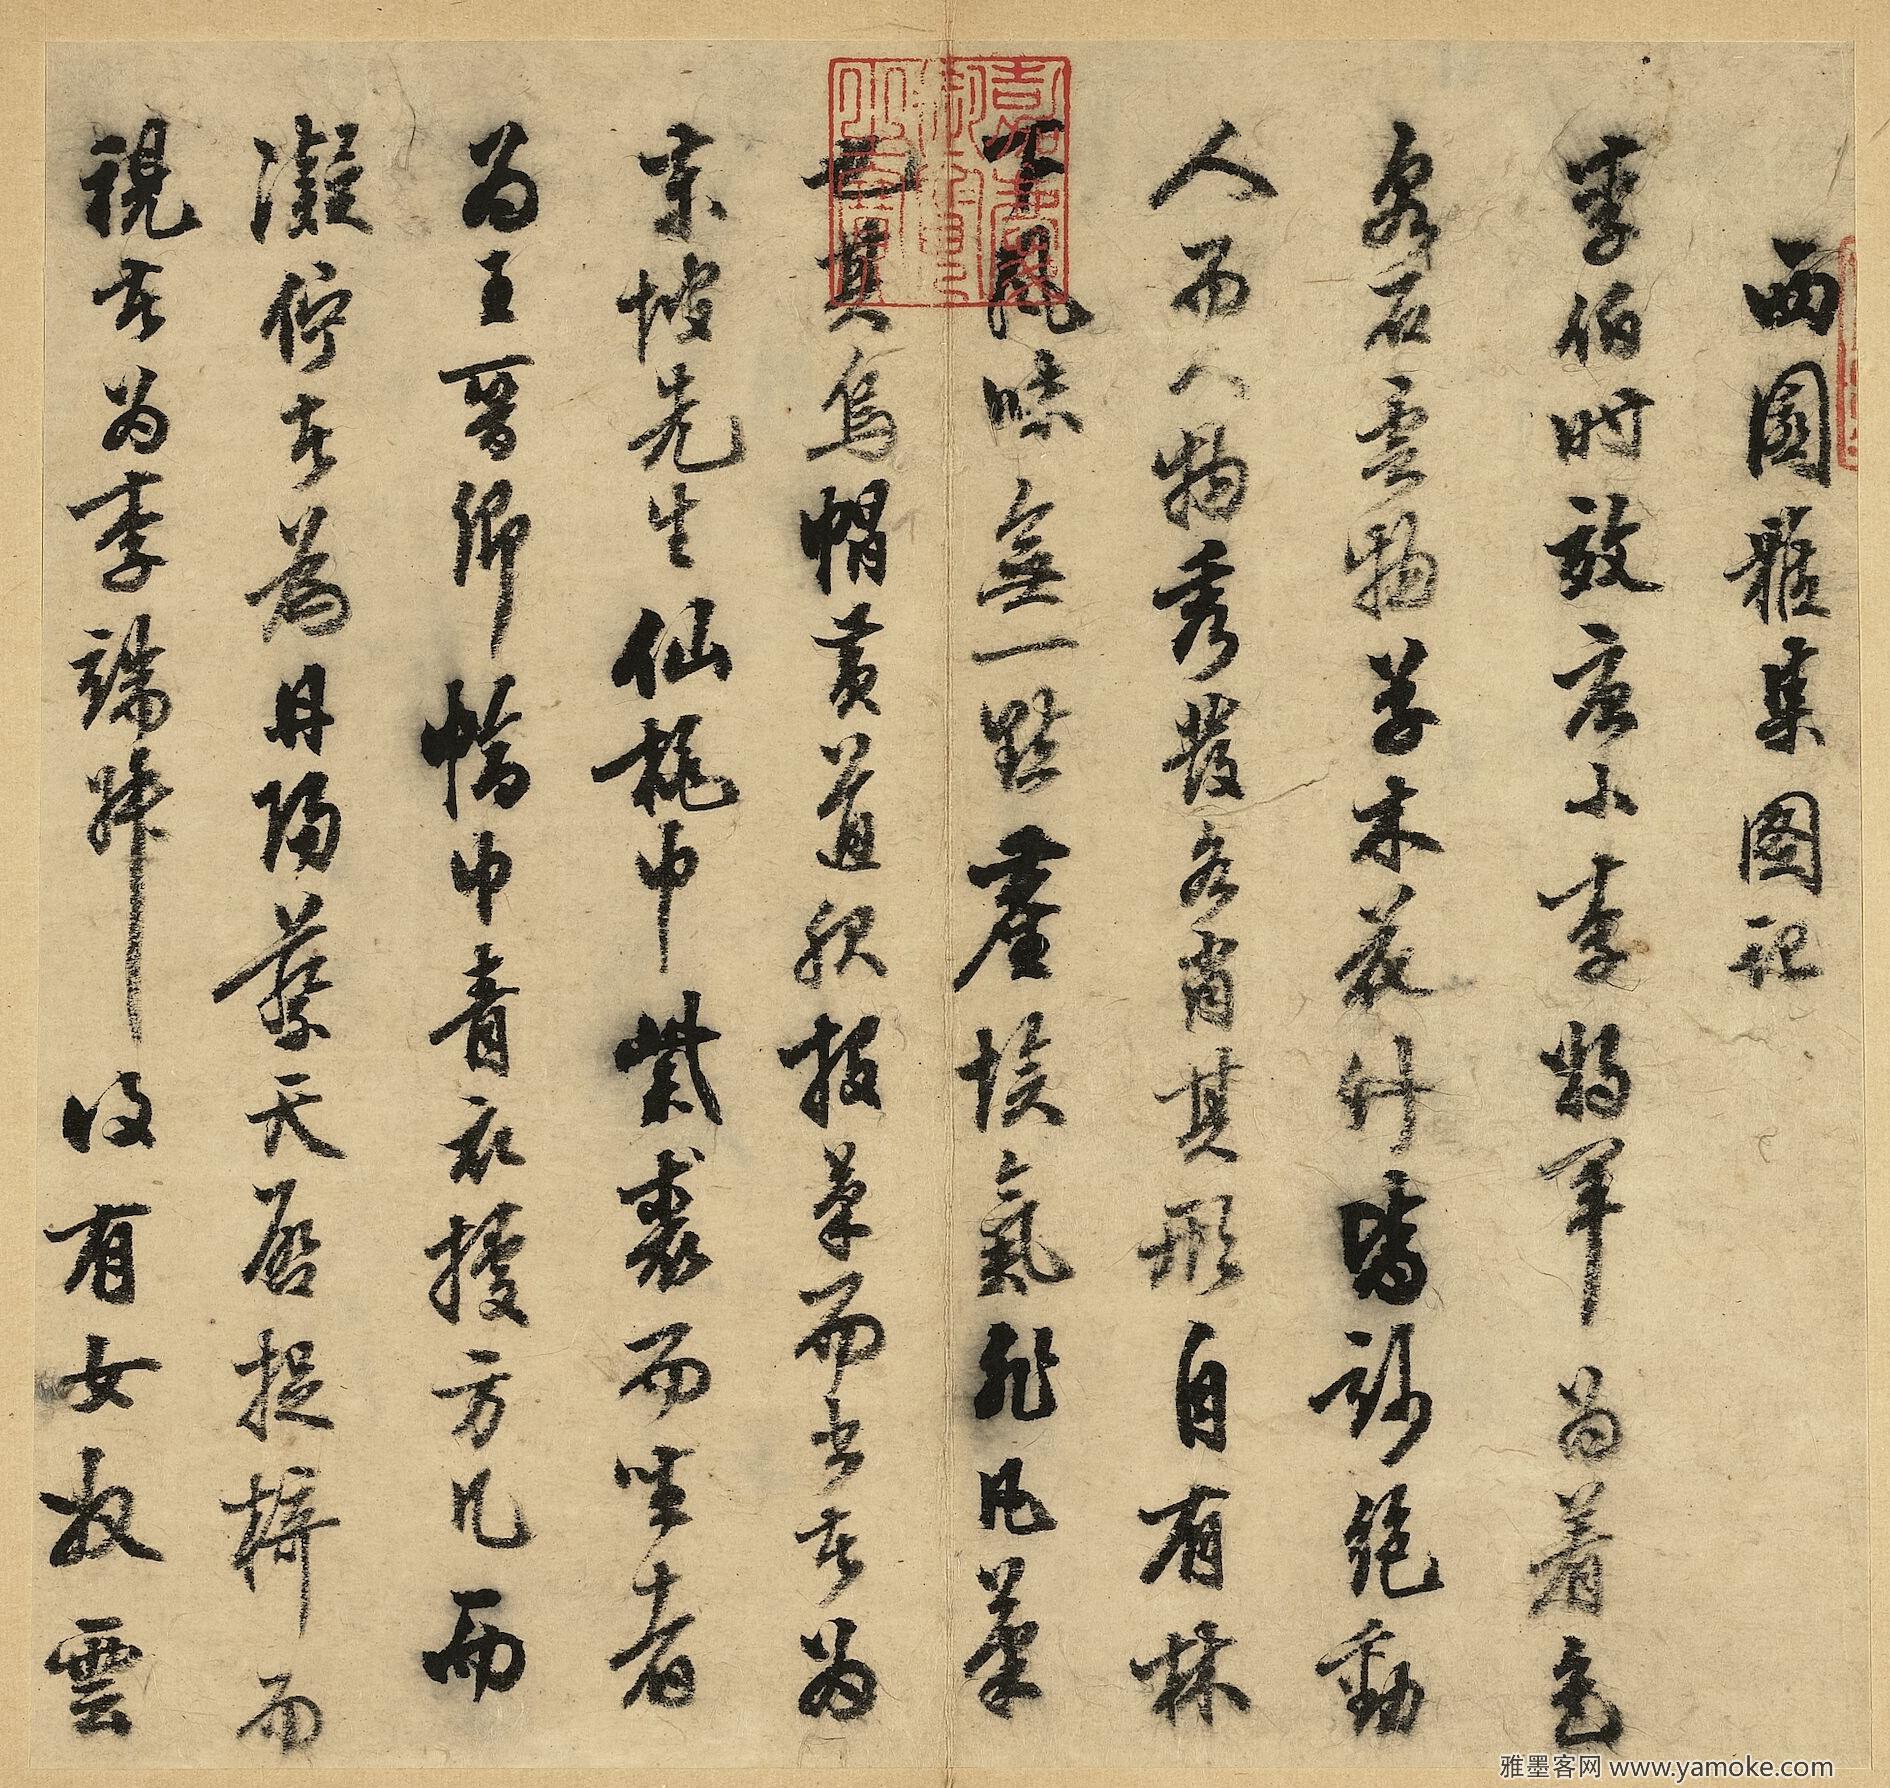 西園雅集图記
李伯时效唐小李将军为着色
泉石雲物草木花竹皆妙絶動
人而人物秀發各肖其形自有林
下風味無一點塵埃氣非凡筆
也其烏帽黄道服投筆而书者为
東坡先生仙桃巾紫裘而坐者
为王晋卿幅巾青衣據方几而
凝佇者為丹陽蔡天啓捉椅而
視者为李端叔後有女奴雲
雅墨客网 www.yamoke.com